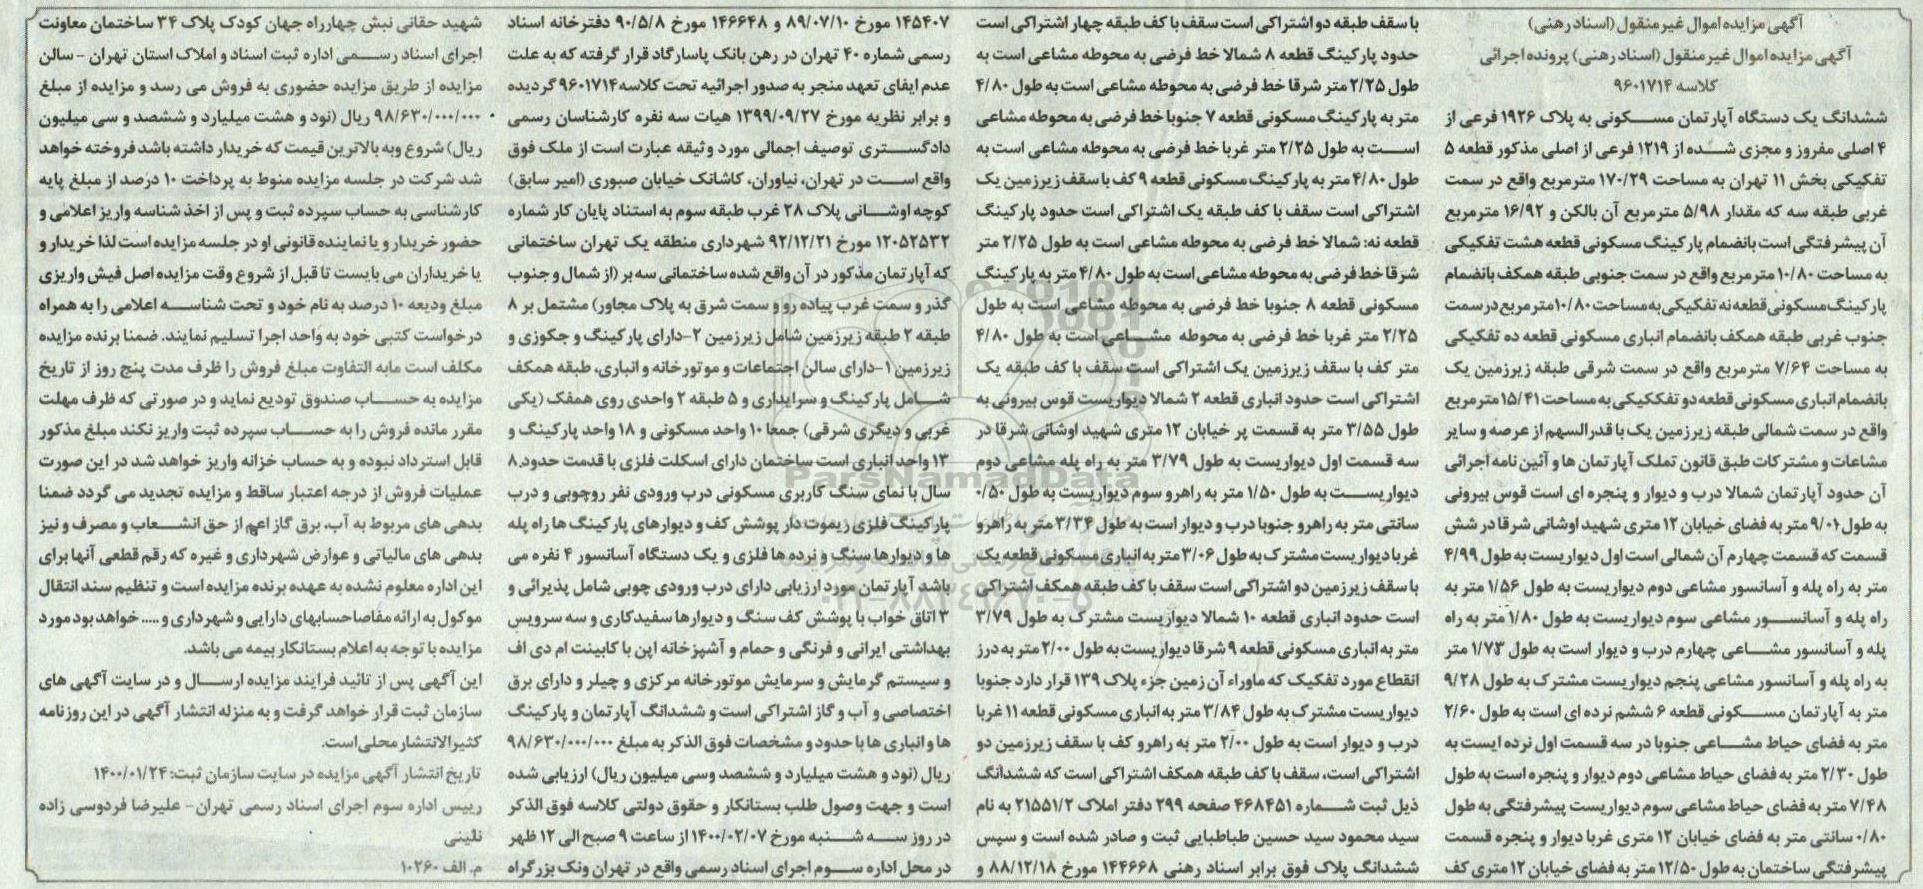 آگهی مزایده اموال غیر منقول (اسناد رهنی)
آگهی مزایده اموال غیر منقول (اسناد رهنی) پرونده اجرائی
کلاسه ۹۶۰۱۷۱۴
ششدانگ یک دستگاه آپارتمان مسکونی به پلاک ۱۹۲۶ فرعی از
۴ اصلی مفروز و مجزی شده از ۱۲۱۹ فرعی از اصلی مذکور قطعه ۵
تفکیکی بخش ۱۱ تهران به مساحت ۱۷۰/۲۹ مترمربع واقع در سمت
غربی طبقه سه که مقدار ۵/۹۸ مترمربع آن بالکن و ۱۶/۹۲ مترمربع
آن پیشرفتگی است بانضمام پارکینگ مسکونی قطعه هشت تفکیکی
به مساحت ۱۰/۸۰ متر مربع واقع در سمت جنوبی طبقه همکف بانضمام
پارکینگ مسکونی قطعه نه تفکیکی به مساحت ۱۰/۸۰ مترمربع در سمت
جنوب غربی طبقه همکف بانضمام انباری مسکونی قطعه ده تفکیکی
به مساحت ۷/۶۴ مترمربع واقع در سمت شرقی طبقه زیرزمین یک
بانضمام انباری مسکونی قطعه دو تفککیکی به مساحت ۱۵/۴۱ مترمربع
واقع در سمت شمالی طبقه زیرزمین یک با قدرالسهم از عرصه و سایر
مشاعات و مشترکات طبق قانون تملک آپارتمان ها و آئین نامه اجرائی
آن حدود آپارتمان شمالا درب و دیوار و پنجره ای است قوس بیرونی
به طول ۹/۰۱ متر به فضای خیابان ۱۲ متری شهید اوشانی شرقا در شش
قسمت که قسمت چهارم آن شمالی است اول دیواریست به طول ۴/۹۹
متر به راه پله و آسانسور مشاعی دوم دیواریست به طول ۱/۵۶ متر به
راه پله و آسانسور مشاعی سوم دیواریست به طول ۱/۸۰ متر به راه
پله و آسانسور مشاعی چهارم درب و دیوار است به طول ۱/۷۳ متر
به راه پله و آسانسور مشاعی پنجم دیواریست مشترک به طول ۹/۲۸
متر به آپارتمان مسکونی قطعه ۶ ششم نرده ای است به طول ۲/۶۰
متر به فضای حیاط مشاعی جنوبا در سه قسمت اول نرده ایست به
طول ۲/۳۰ متر به فضای حیاط مشاعی دوم دیوار و پنجره است به طول
۷/۴۸ متر به فضای حیاط مشاعی سوم دیواریست پیشرفتگی به طول
۰/۸۰ سانتی متر به فضای خیابان ۱۲ متری غربا دیوار و پنجره قسمت
پیشرفتگی ساختمان به طول ۱۲/۵۰ متر به فضای خیابان ۱۲ متری کف
با سقف طبقه دو اشتراکی است سقف با کف طبقه چهار اشتراکی است
حدود پارکینگ قطعه ۸ شمالا خط فرضی به محوطه مشاعی است به
طول ۲/۲۵ متر شرقا خط فرضی به محوطه مشاعی است به طول ۴/۸۰
متر به پارکینگ مسکونی قطعه ۷ جنوبا خط فرضی به محوطه مشاعی
است به طول ۲/۲۵ متر غربا خط فرضی به محوطه مشاعی است به
طول ۴/۸۰ متر به پارکینگ مسکونی قطعه ۹ کف با سقف زیرزمین یک
اشتراکی است سقف با کف طبقه یک اشتراکی است حدود پارکینگ
قطعه نه: شمالا خط فرضی به محوطه مشاعی است به طول ۲/۲۵ متر
شرقا خط فرضی به محوطه مشاعی است به طول ۴/۸۰ متر به پارکینگ
مسکونی قطعه ۸ جنوبا خط فرضی به محوطه مشاعی است به طول
۲/۲۵ متر غربا خط فرضی به محوطه مشاعی است به طول ۴/۸۰
متر کف با سقف زیرزمین یک اشتراکی است سقف با کف طبقه یک
اشتراکی است حدود انباری قطعه ۲ شمالا دیواریست قوس بیرونی به
طول ۳/۵۵ متر به قسمت پر خیابان ۱۲ متری شهید اوشانی شرقا در
سه قسمت اول دیواریست به طول ۳/۷۹ متر به راه پله مشاعی دوم
دیواریست به طول ۱/۵۰ متر به راهرو سوم دیواریست به طول ۰/۵۰
سانتی متر به راهرو جنوبا درب و دیوار است به طول ۳/۳۴ متر به راهرو
غربا دیواریست مشترک به طول ۳/۰۶ متر به انباری مسکونی قطعه یک
با سقف زیرزمین دو اشتراکی است سقف با کف طبقه همکف اشتراکی
است حدود انباری قطعه ۱۰ شمالا دیواریست مشترک به طول ۳/۷۹
متر به انباری مسکونی قطعه ۹ شرقا دیواریست به طول ۲/۰۰ متر به درز
انقطاع مورد تفکیک که ماوراء آن زمین جزء پلاک ۱۳۹ قرار دارد جنوبا
دیواریست مشترک به طول ۳/۸۴ متر به انباری مسکونی قطعه ۱۱ غربا
درب و دیوار است به طول ۲/۰۰ متر به راهرو کف با سقف زیرزمین دو
اشتراکی است، سقف با کف طبقه همکف اشتراکی است که ششدانگ
ذیل ثبت شماره ۴۶۸۴۵۱ صفحه ۲۹۹ دفتر املاک ۲۱۵۵۱/۲ به نام
سید محمود سید حسین طباطبایی ثبت و صادر شده است و سپس
ششدانگ پلاک فوق برابر اسناد رهنی ۱۴۴۶۶۸ مورخ ۸۸/۱۲/۱۸ و
۱۴۵۴۰۷ مورخ ۸۹/۰۷/۱۰ و ۱۴۶۶۴۸ مورخ ۹۰/۵/۸ دفترخانه اسناد
رسمی شماره ۴۰ تهران در رهن بانک پاسارگاد قرار گرفته که به علت
عدم ایفای تعهد منجر به صدور اجرائیه تحت کلاسه ۹۶۰۱۷۱۴ گردیده
و برابر نظریه مورخ ۱۳۹۹/۰۹/۲۷ هیات سه نفره کارشناسان رسمی
دادگستری توصیف اجمالی مورد وثیقه عبارت است از ملک فوق
واقع است در تهران، نیاوران، کاشانک خیابان صبوری (امیر سابق)
کوچه اوشانی پلاک ۲۸ غرب طبقه سوم به استناد پایان کار شماره
۱۲۰۵۲۵۳۲ مورخ ۹۲/۱۲/۲۱ شهرداری منطقه یک تهران ساختمانی
که آپارتمان مذکور در آن واقع شده ساختمانی سه بر (از شمال و جنوب
گذر و سمت غرب پیاده رو و سمت شرق به پلاک مجاور) مشتمل بر ۸
طبقه ۲ طبقه زیرزمین شامل زیرزمین ۲-دارای پارکینگ و جکوزی و
زیرزمین ۱-دارای سالن اجتماعات و موتورخانه و انباری، طبقه همکف
شامل پارکینگ و سرایداری و ۵ طبقه ۲ واحدی روی همفک (یکی
غربی و دیگری شرقی) جمعا ۱۰ واحد مسکونی و ۱۸ واحد پارکینگ و
۱۳ واحد انباری است ساختمان دارای اسکلت فلزی با قدمت حدود ۸
سال با نمای سنگ کاربری مسکونی درب ورودی نفر روچوبی و درب
پارکینگ فلزی ریموت دار پوشش کف و دیوارهای پارکینگ ها راه پله
ها و دیوارها سنگ و نرده ها فلزی و یک دستگاه آسانسور ۴ نفره می
باشد آپارتمان مورد ارزیابی دارای درب ورودی چوبی شامل پذیرائی و
۳ اتاق خواب با پوشش کف سنگ و دیوارها سفیدکاری و سه سرویس
بهداشتی ایرانی و فرنگی و حمام و آشپزخانه اپن با کابینت ام دی اف
و سیستم گرمایش و سرمایش موتورخانه مرکزی و چیلر و دارای برق
اختصاصی و آب و گاز اشتراکی است و ششدانگ آپارتمان و پارکینگ
ها و انباری ها با حدود و مشخصات فوق الذکر به مبلغ ۹۸/۶۳۰/۰۰۰/۰۰۰
ریال (نود و هشت میلیارد و ششصد وسی میلیون ریال) ارزیابی شده
است و جهت وصول طلب بستانکار و حقوق دولتی کلاسه فوق الذکر
در روز سه شنبه مورخ ۱۴۰۰/۰۲/۰۷ از ساعت ۹ صبح الی ۱۲ ظهر
در محل اداره سوم اجرای اسناد رسمی واقع در تهران ونک بزرگراه
شهید حقانی نبش چهارراه جهان کودک پلاک ۳۴ ساختمان معاونت
اجرای اسناد رسمی اداره ثبت اسناد و املاک استان تهران - سالن
مزایده از طریق مزایده حضوری به فروش می رسد و مزایده از مبلغ
۹۸/۶۳۰/۰۰۰/۰۰۰ ریال (نود و هشت میلیارد و ششصد و سی میلیون
ریال) شروع وبه بالاترین قیمت که خریدار داشته باشد فروخته خواهد
شد شرکت در جلسه مزایده منوط به پرداخت ۱۰ درصد از مبلغ پایه
کارشناسی به حساب سپرده ثبت و پس از اخذ شناسه واریز اعلامی و
حضور خریدار و یا نماینده قانونی او در جلسه مزایده است لذا خریدار و
یا خریداران می بایست تا قبل از شروع وقت مزایده اصل فیش واریزی
مبلغ ودیعه ۱۰ درصد به نام خود و تحت شناسه اعلامی را به همراه
درخواست کتبی خود به واحد اجرا تسلیم نمایند. ضمنا برنده مزایده
مکلف است مابه التفاوت مبلغ فروش را ظرف مدت پنج روز از تاریخ
مزایده به حساب صندوق تودیع نماید و در صورتی که ظرف مهلت
مقرر مانده فروش را به حساب سپرده ثبت واریز نکند مبلغ مذکور
قابل استرداد نبوده و به حساب خزانه واریز خواهد شد در این صورت
عملیات فروش از درجه اعتبار ساقط و مزایده تجدید می گردد ضمنا
بدهی های مربوط به آب، برق گاز اعم از حق انشعاب و مصرف و نیز
بدهی های مالیاتی و عوارض شهرداری و غیره که رقم قطعی آنها برای
این اداره معلوم نشده به عهده برنده مزایده است و تنظیم سند انتقال
موکول به ارائه مفاصاحسابهای دارایی و شهرداری و ..... خواهد بود مورد
مزایده با توجه به اعلام بستانکار بیمه می باشد.
این آگهی پس از تائید فرایند مزایده ارسال و در سایت آگهی های
سازمان ثبت قرار خواهد گرفت و به منزله انتشار آگهی در این روزنامه
کثیرالانتشار محلی است.
تاریخ انتشار آگهی مزایده در سایت سازمان ثبت: ۱۴۰۰/۰۱/۲۴
رییس اداره سوم اجرای اسناد رسمی تهران- علیرضا فردوسی زاده
نائینی
م. الف ۱۰۲۶۰
ParsNamadData